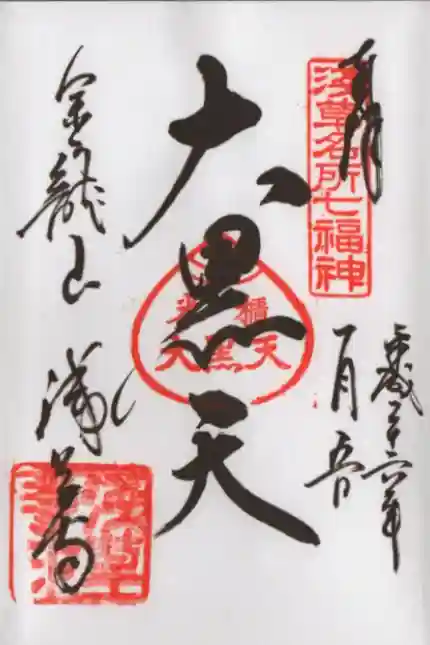 奉拝
浅草名所七福神
平成二十六年
一月吉日
大黒天
米櫃
大黒天
金龍山
浅草寺